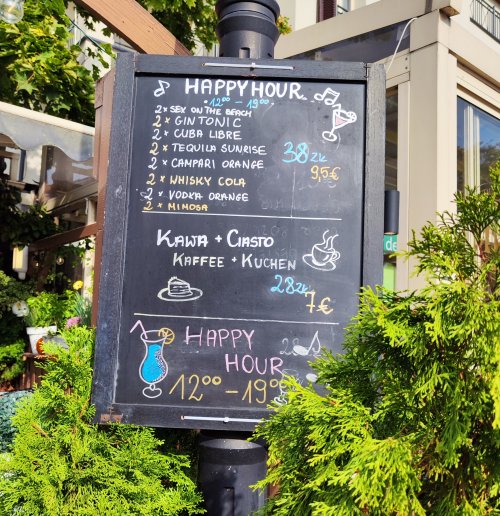 HAPPY HOUR
12⁰⁰ - 19⁰⁰
2x SEX ON THE BEACH
2x GIN TONIC
2x CUBA LIBRE
2x TEQUILA SUNRISE 38zł
2x CAMPARI ORANGE 9,5€
2x WHISKY COLA
2x VODKA ORANGE
2x MIMOSA
KAWA + CIASTO
KAFFEE + KUCHEN
28zł
7€
HAPPY
HOUR
12⁰⁰ - 19⁰⁰